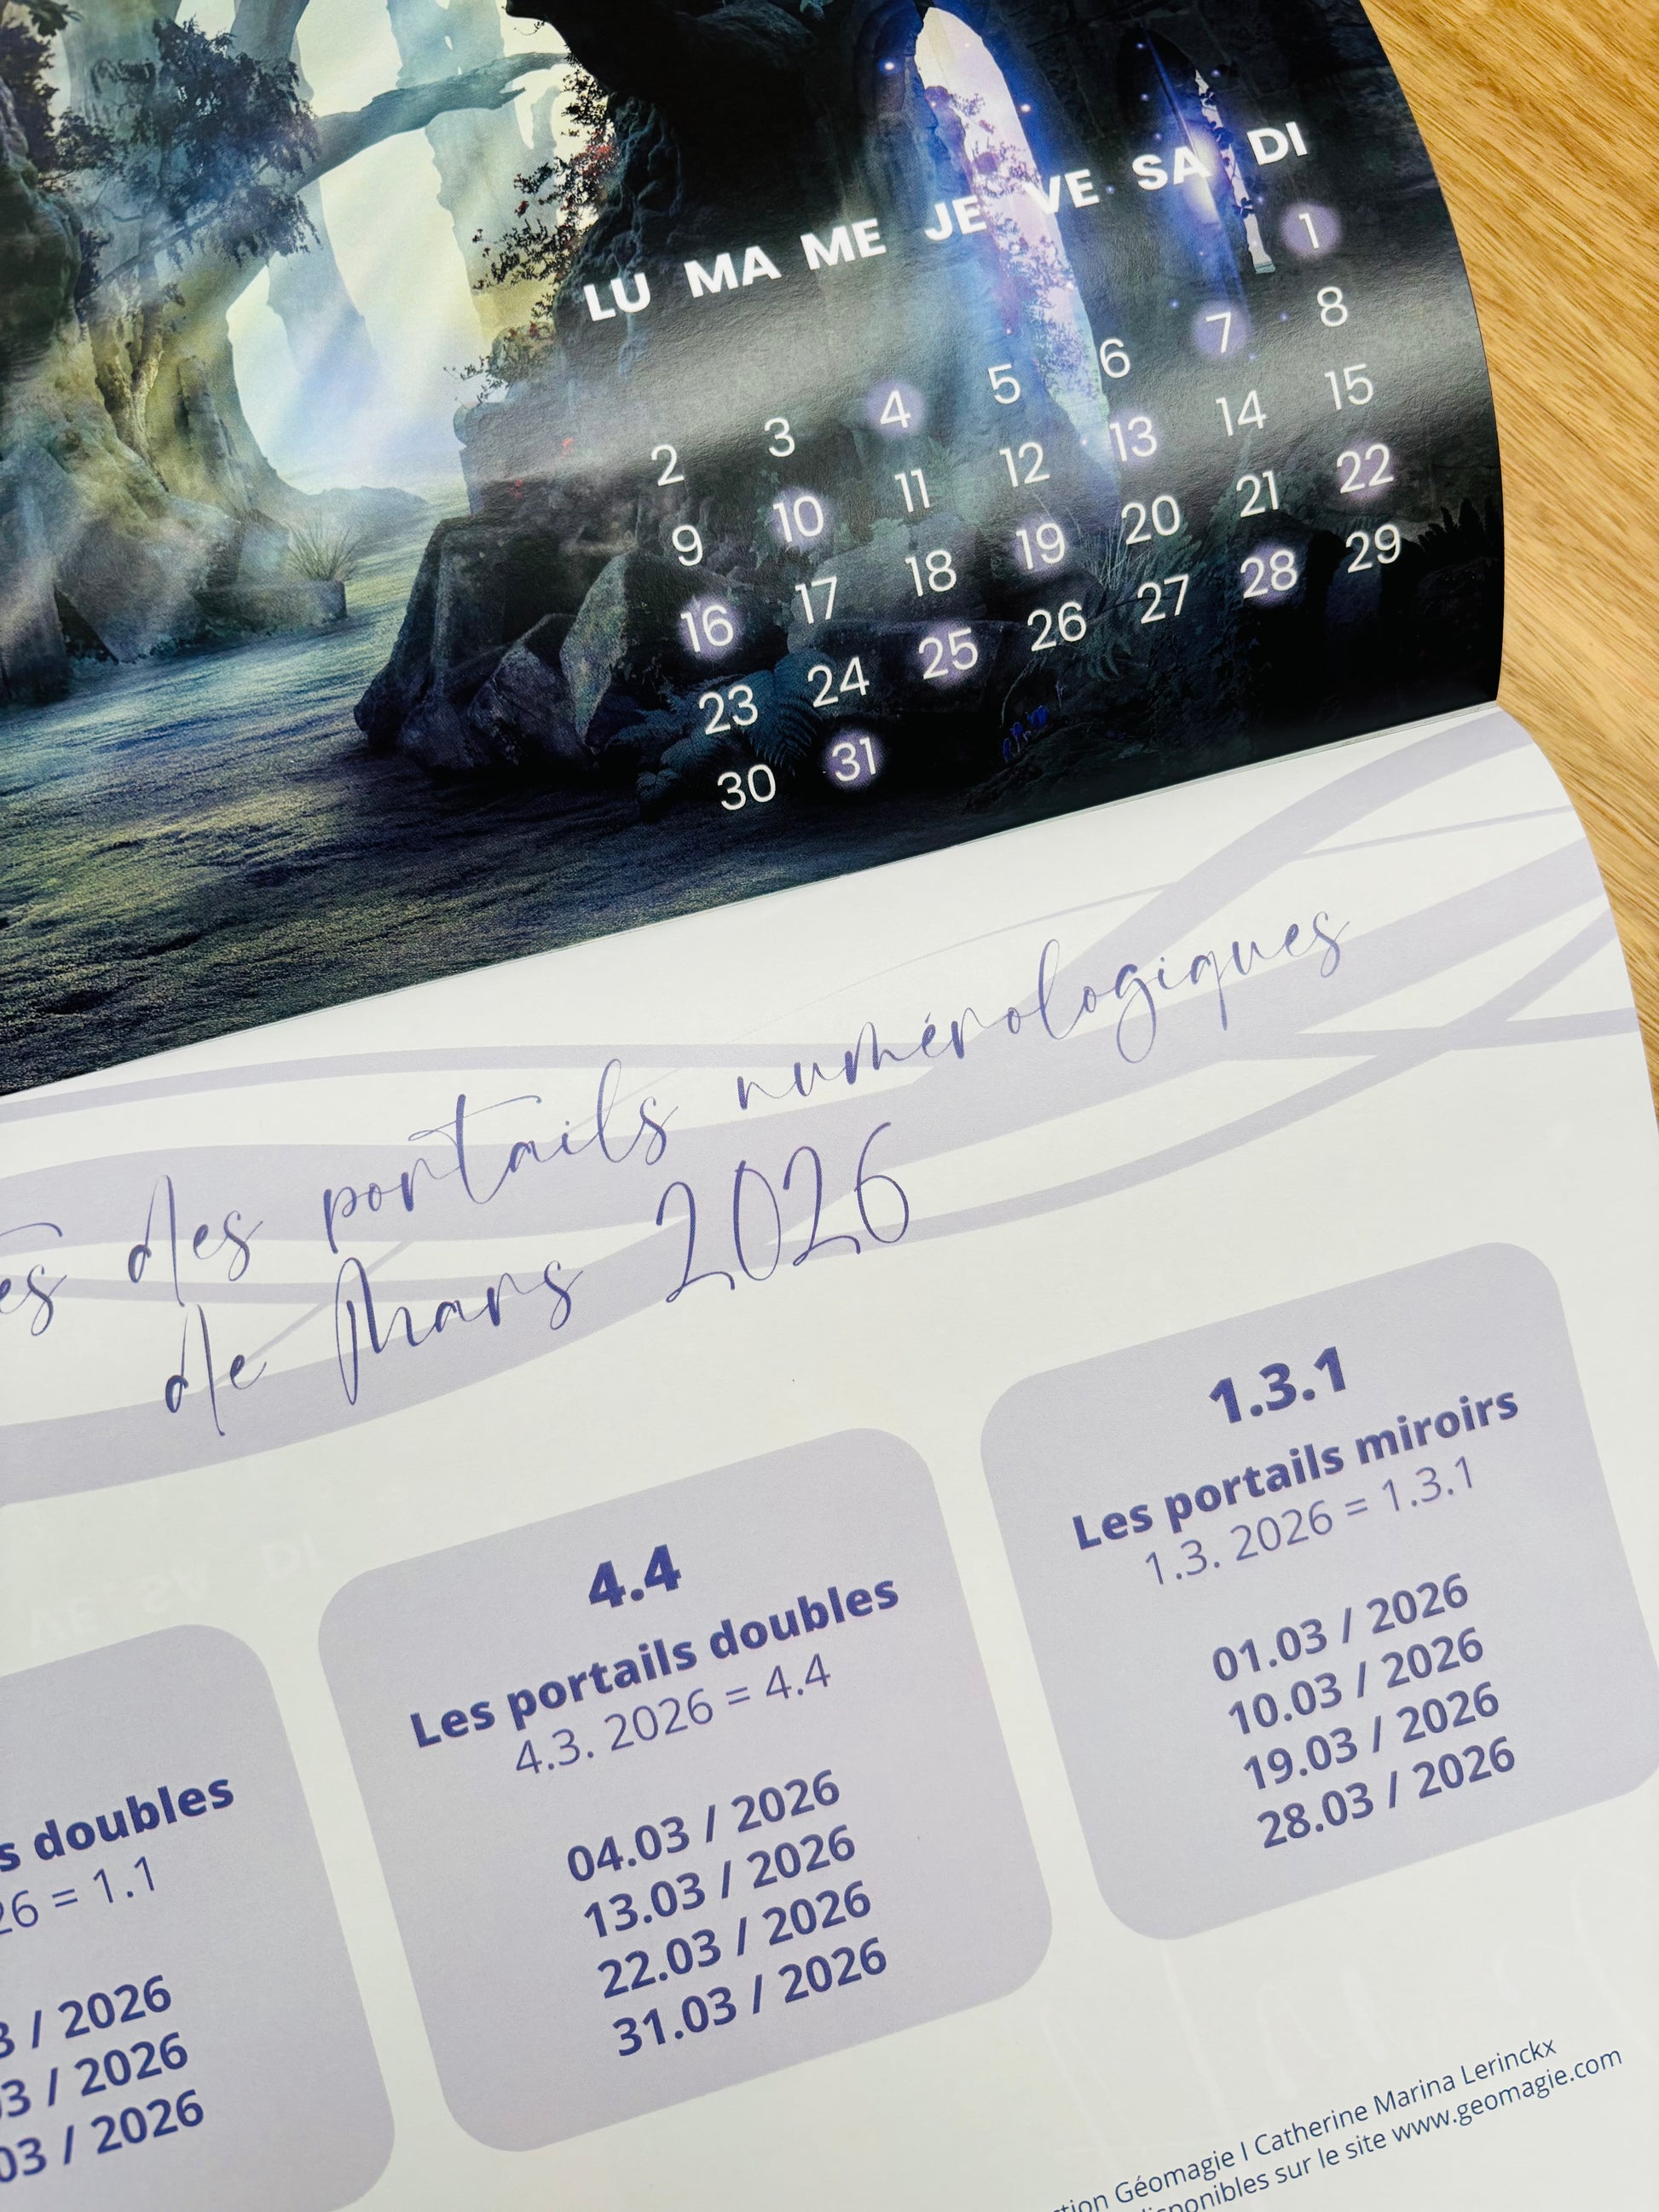 LU MA ME JE VE SA DI
1
2 3 4 5 6 7 8
9 10 11 12 13 14 15
16 17 18 19 20 21 22
23 24 25 26 27 28 29
30 31
des portails numérologiques
de Mars 2026
s doubles
26 = 1.1
3 / 2026
03 / 2026
03 / 2026
4.4
Les portails doubles
4.3. 2026 = 4.4
04.03 / 2026
13.03 / 2026
22.03 / 2026
31.03 / 2026
1.3.1
Les portails miroirs
1.3. 2026 = 1.3.1
01.03 / 2026
10.03 / 2026
19.03 / 2026
28.03 / 2026
Géomagie I Catherine Marina Lerinckx
disponibles sur le site www.geomagie.com